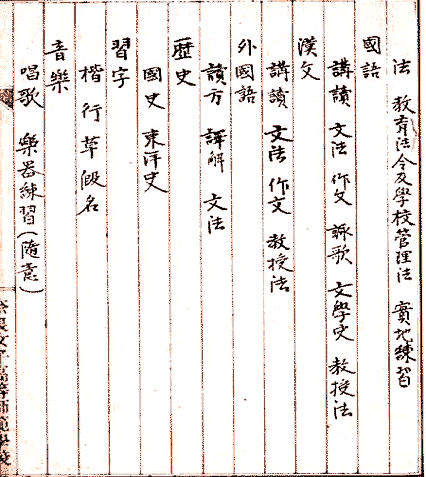 法 教育法令及學校管理法 實地練習
國語
講讀 文法 作文 詠歌 文學史 教授法
漢文
講讀 文法 作文 教授法
外國語
讀方 譯解 文法
歷史
國史 東洋史
習字
楷行草假名
音樂
唱歌 樂器練習(隨意)
奈良女子高等師範學校